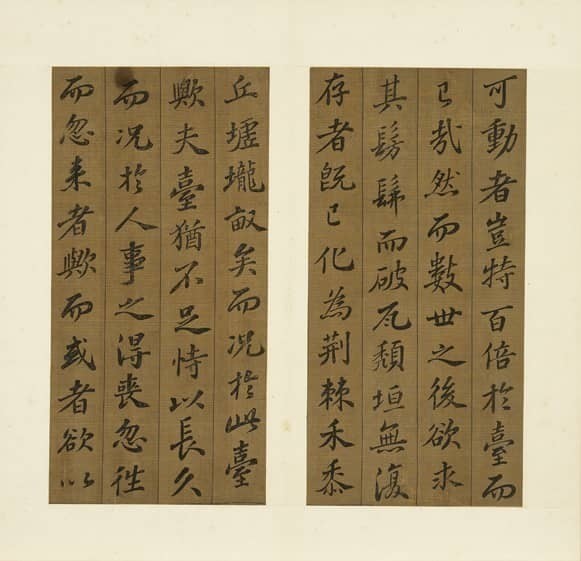 可動者豈特百倍於臺而
已哉然而數世之後欲求
其髣髴而破瓦頹垣無復
存者既已化為荆棘禾黍
丘墟壠畝矣而况於此臺
歟夫臺猶不足恃以長久
而况於人事之得喪忽往
而忽来者歟而或者欲以